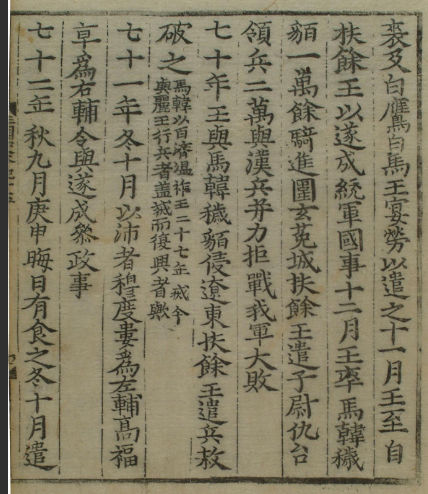 裘及白鷹白馬王宴勞以遣之十一月王至自
扶餘王以遂成統軍國事十二月王率馬韓穢
貊一萬餘騎進圍玄菟城扶餘王遣子尉仇台
領兵二萬與漢兵并力拒戰我軍大敗
七十年王與馬韓穢貊侵遼東扶餘王遣兵救
破之
馬韓以百濟溫祚王二十七年滅今
與麗王行兵者盖滅而復興者歟
七十一年冬十月以沛者穆度婁爲左輔高福
章爲右輔令與遂成參政事
七十二年秋九月庚申晦日有食之冬十月遣